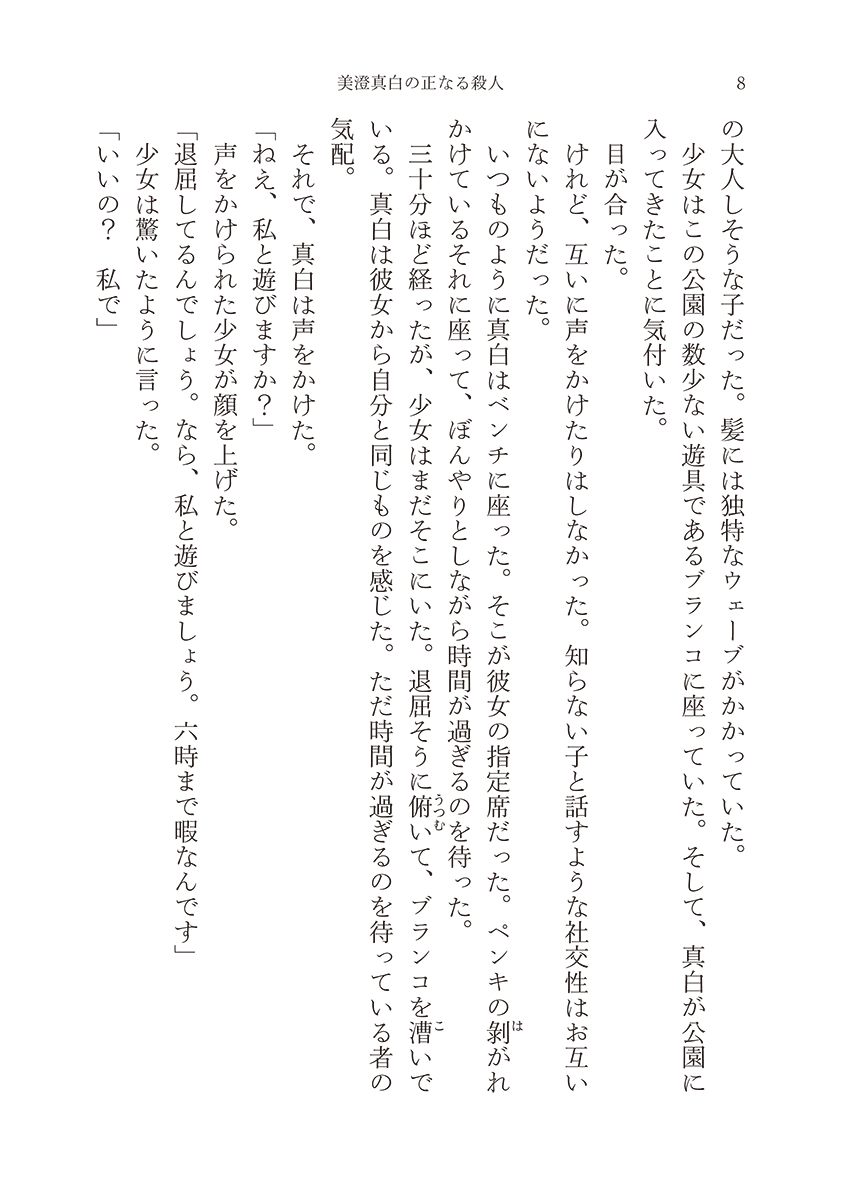 美澄真白の正なる殺人
8
の大人しそうな子だった。髪には独特なウェーブがかかっていた。
　少女はこの公園の数少ない遊具であるブランコに座っていた。そして、真白が公園に
入ってきたことに気付いた。
　目が合った。
　けれど、互いに声をかけたりはしなかった。知らない子と話すような社交性はお互い
にないようだった。
　いつものように真白はベンチに座った。そこが彼女の指定席だった。ペンキの剝がれ
かけているそれに座って、ぼんやりとしながら時間が過ぎるのを待った。
　三十分ほど経ったが、少女はまだそこにいた。退屈そうに俯いて、ブランコを漕いで
いる。真白は彼女から自分と同じものを感じた。ただ時間が過ぎるのを待っている者の
気配。
　それで、真白は声をかけた。
「ねえ、私と遊びますか？」
　声をかけられた少女が顔を上げた。
「退屈してるんでしょう。なら、私と遊びましょう。六時まで暇なんです」
　少女は驚いたように言った。
「いいの？　私で」
は
うつむ
こ